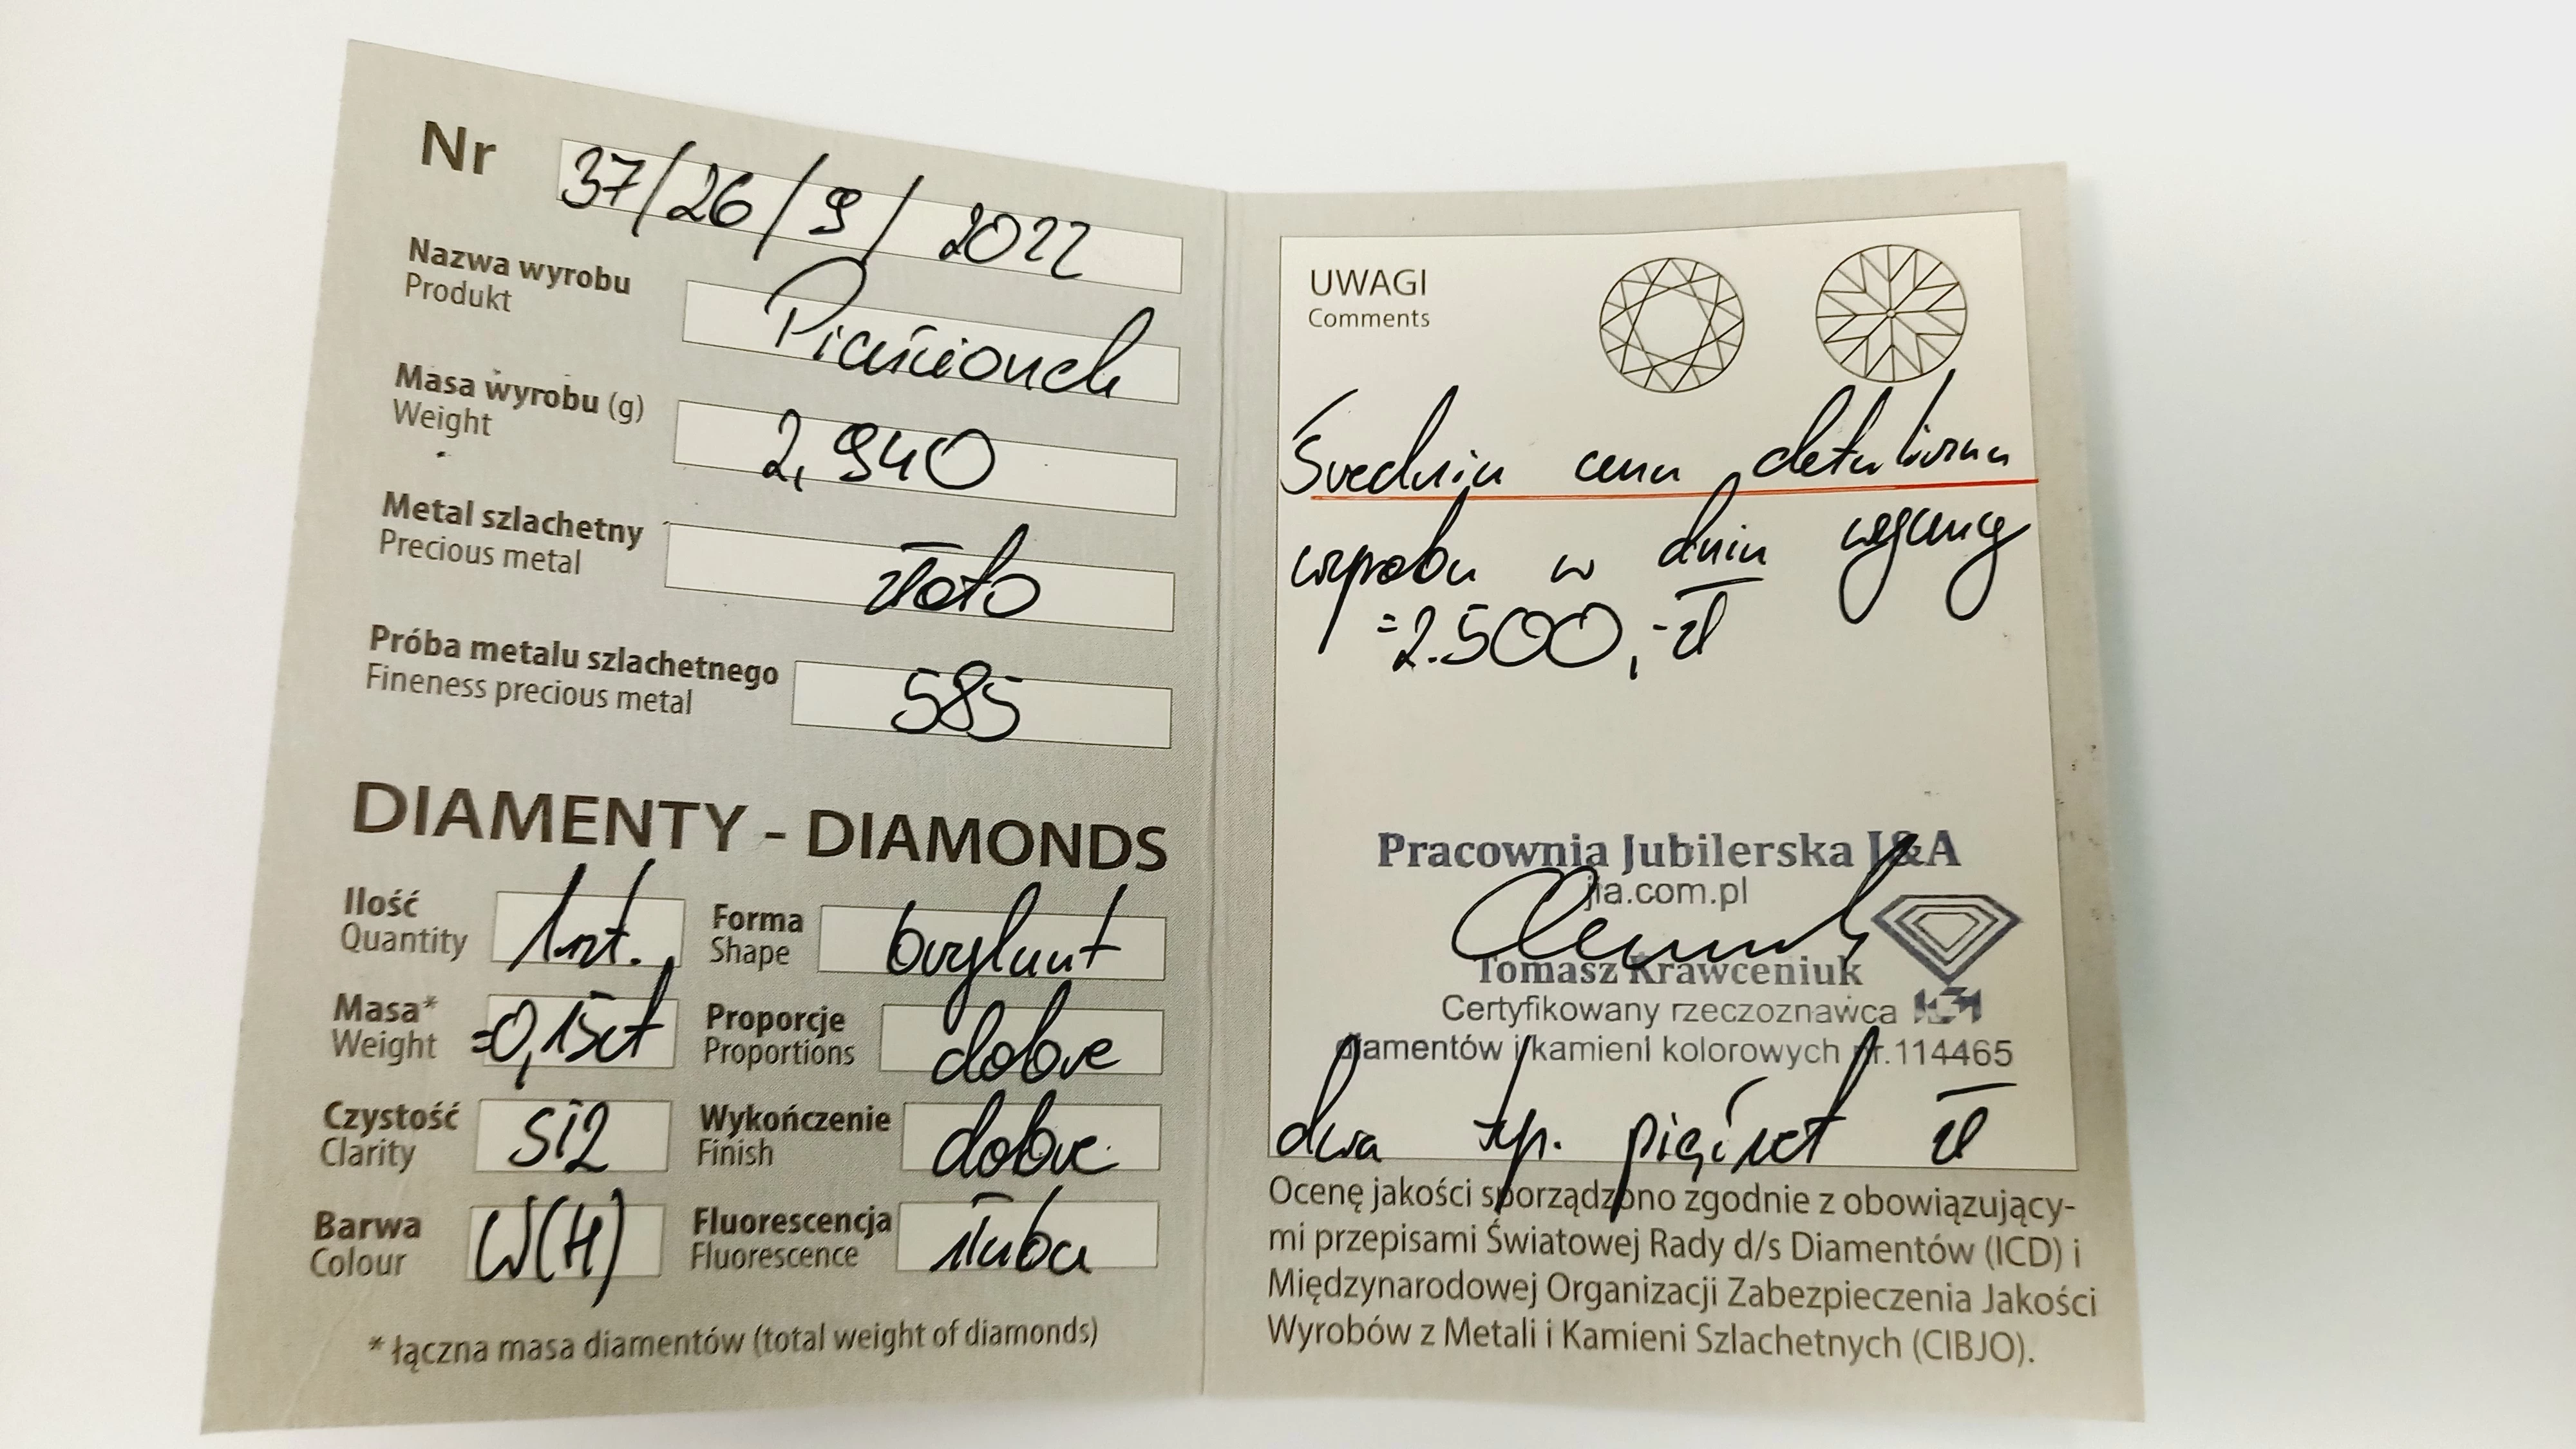 Nr 37/26/9/2022
Nazwa wyrobu
Produkt
Pierścionek
Masa wyrobu (g)
Weight
2,940
Metal szlachetny
Precious metal
złoto
Próba metalu szlachetnego
Fineness precious metal
585
DIAMENTY - DIAMONDS
Ilość
Quantity
1szt.
Forma
Shape
brylant
Masa*
Weight
=0,15ct
Proporcje
Proportions
dobre
Czystość
Clarity
Si2
Wykończenie
Finish
dobre
Barwa
Colour
W(H)
Fluorescencja
Fluorescence
słaba
* łączna masa diamentów (total weight of diamonds)
UWAGI
Comments
Średnia cena detaliczna
wyrobu w dniu wyceny
=2.500,-zł
Pracownia Jubilerska J&A
jia.com.pl
Tomasz Krawceniuk
Certyfikowany rzeczoznawca
diamentów i kamieni kolorowych nr.114465
dwa tyś. pięćset zł
Ocenę jakości sporządzono zgodnie z obowiązujący-
mi przepisami Światowej Rady d/s Diamentów (ICD) i
Międzynarodowej Organizacji Zabezpieczenia Jakości
Wyrobów z Metali i Kamieni Szlachetnych (CIBJO).